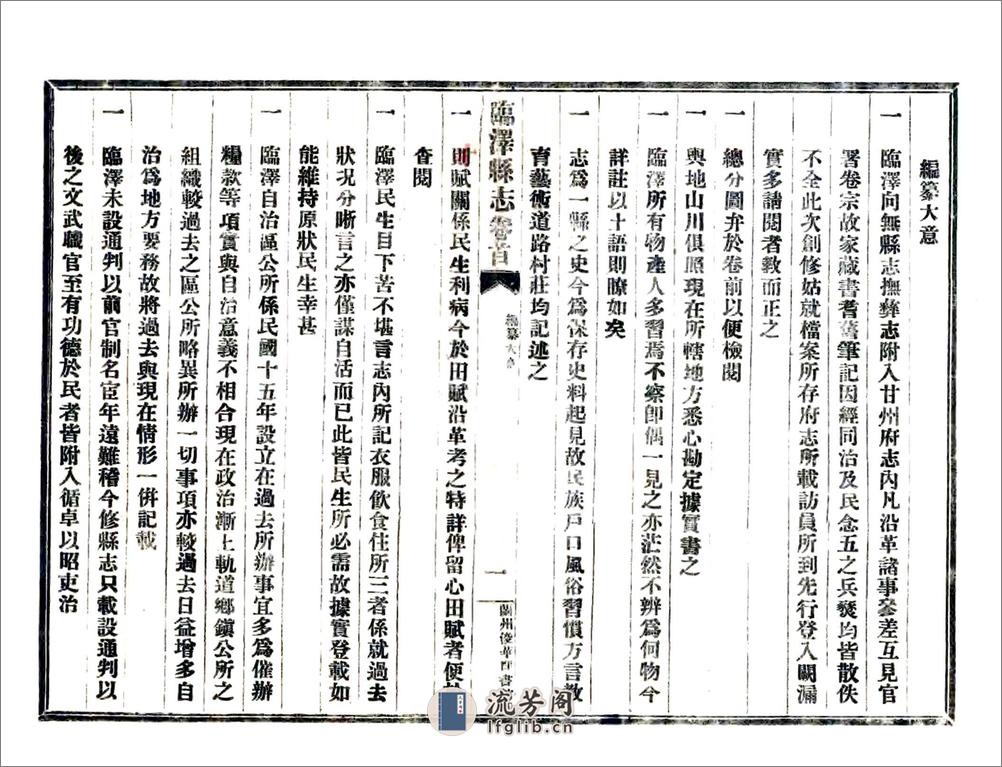 編纂大意
一 臨澤向無縣志撫彝志附入甘州府志內凡沿革諸事參差互見官
署卷宗故家藏書耆蓍筆記因經同治及民念五之兵燹均皆散佚
不全此次創修姑就檔案所存府志所載訪員所到先行登入闕漏
實多請閱者教而正之
一 總分圖弁於卷前以便檢閱
一 輿地山川俱照現在所轄地方悉心勘定據實書之
一 臨澤所有物產人多習焉不察卽偶一見之亦茫然不辨為何物今
詳註以土語則瞭如矣
一 志為一縣之史今為保存史料起見故民族戶口風俗習慣方言教
育藝術道路村莊均記述之
臨澤縣志卷首
編纂大意
一
蘭州俊華印書館
一 則賦關係民生利病今於田賦沿革考之特詳俾留心田賦者便於
查閱
一 臨澤民生目下苦不堪言志內所記衣服飲食住所三者係就過去
狀况分晰言之亦僅謀自活而已此皆民生所必需故據實登載如
能維持原狀民生幸甚
一 臨澤自治區公所係民國十五年設立在過去所辦事宜多為催辦
糧款等項實與自治意義不相合現在政治漸上軌道鄉鎮公所之
組織較過去之區公所略異所辦一切事項亦較過去日益增多自
治為地方要務故將過去與現在情形一併記載
一 臨澤未設通判以前官制名宦年遠難稽今修縣志只載設通判以
後之文武職官至有功德於民者皆附入循卓以昭吏治
流芳阁
lfglib.cn